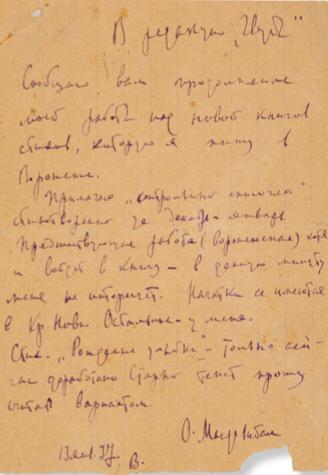 В редакцию „Звезда“
Сообщаю вам продолжение
моей работы над новой книгой
стихов, которую я пишу в
Воронеже.
Прилагаю „контрольный списочек“
стихотворений за декабрь – январь
Предшествующая работа (воронежская) хотя
и войдет в книгу – в данную минуту
меня не интересует. Начатки ее имеются
в Кр. Нови. Остальное – у меня.
Стих. „Рождение улыбки“ – только сей-
час доработано Старый текст прошу
считать вариантом.
О. Мандельштам
13 янв. 37 г.
В.